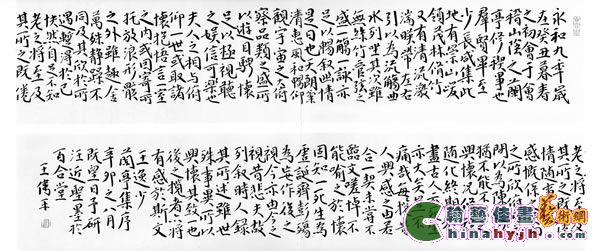 永和九年歲
在癸丑暮春
之初會于會
稽山陰之蘭
亭脩稧事也
羣賢畢至
少長咸集此
地有崇山峻
領茂林脩竹
又有清流激
湍暎帶左右
引以為流觴曲
水列坐其次雖
無絲竹管弦之
盛一觴一詠亦
足以暢叙幽情
是日也天朗氣
清惠風和暢仰
觀宇宙之大俯
察品類之盛所
以遊目騁懷
足以極視聽
之娛信可樂也
夫人之相與俯
仰一世或取諸
懷抱悟言一室
之內或因寄所
託放浪形骸
之外雖趣舍
萬殊靜躁不
同及其欣於所
遇蹔得於己
怏然自足不知
老之將至及
其所之既惓
老之將至及
其所之既惓
情隨事遷
感慨係之矣向
之所欣俛仰之
間以為陳迹
猶不能不以之
興懷況脩短
隨化終期於
盡古人云死生
亦大矣豈不
痛哉每攬昔
人興感之由若
合一契未嘗不
臨文嗟悼不
能喻之於懷
固知一死生為
虛誕齊彭殤
為妄作後之
視今亦由今之
視昔悲夫故
列叙時人錄
其所述雖世
殊事異所以
興懷其致一也
後之攬者亦將
有感於斯文
王逸少
蘭亭集序
辛卯之八月
既望日予研
汪近聖墨於
百合堂
藝術網
hinahyjh.com